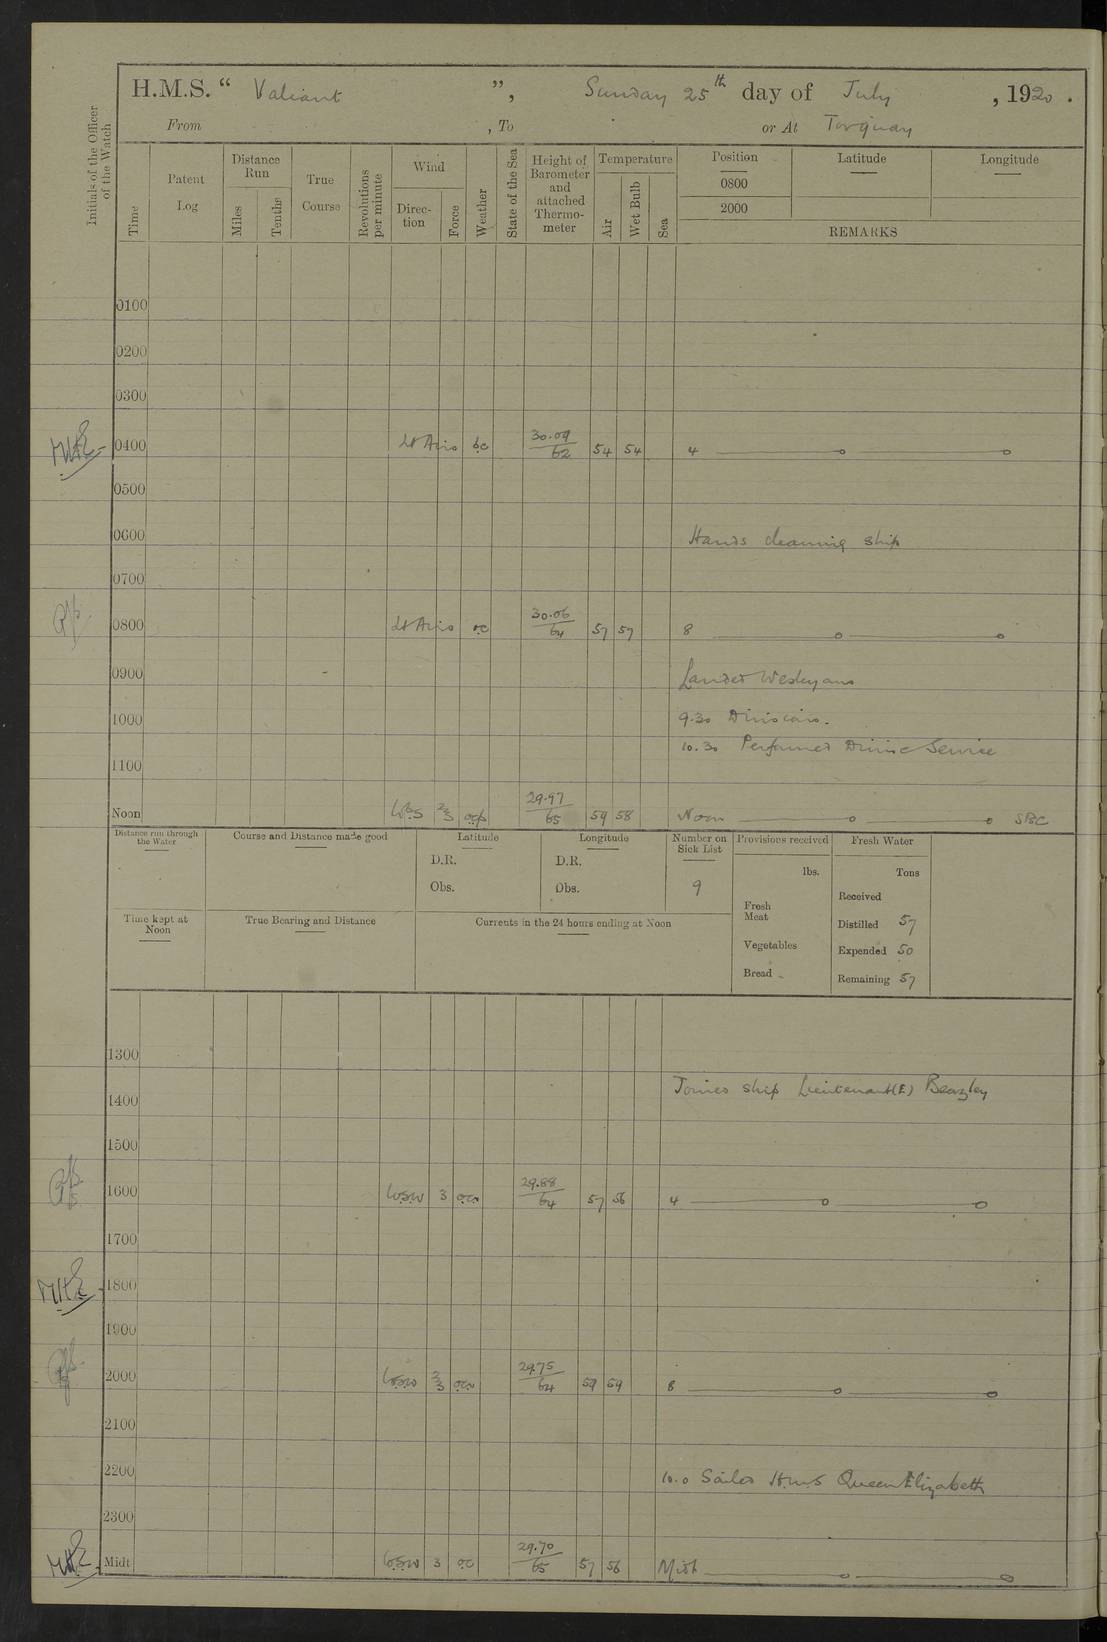 H.M.S. “ Valiant ”, Sunday 25th day of July , 1920 .
From , To or At Torquay
Initials of the Officer of the Watch
Time
Patent Log
Distance Run
Miles
Tenths
True Course
Revolutions per minute
Wind
Direc-tion
Force
Weather
State of the Sea
Height of Barometer and attached Thermo-meter
Temperature
Air
Wet Bulb
Sea
Position
0800
2000
Latitude
Longitude
REMARKS
0100
0200
0300
0400 Lt Airs bc 30.09/62 54 54 4
0500
0600 Hands cleaning ship
0700
0800 Lt Airs oc 30.06/64 57 57 8
0900 Landed Wesleyans
1000 9.30 Divisions.
10.30 Performed Divine Service
1100
Noon WbS 2/3 29.97/65 59 58 Noon SBC
Distance run through the Water
Course and Distance made good
Latitude
D.R.
Obs.
Longitude
D.R.
Obs.
Number on Sick List
9
Provisions received
lbs.
Fresh Meat
Vegetables
Bread
Fresh Water
Tons
Received
Distilled 57
Expended 50
Remaining 57
Time kept at Noon
True Bearing and Distance
Currents in the 24 hours ending at Noon
1300
Joined ship Lieutenant(E) Beazley
1400
1500
1600 WSW 3 29.88/64 57 56 4
1700
1800
1900
2000 WSW 2/3 29.75/64 59 59 8
2100
2200 10.0 Sailed H.M.S Queen Elizabeth
2300
Midt WSW 3 oc 29.70/65 57 56 Midt